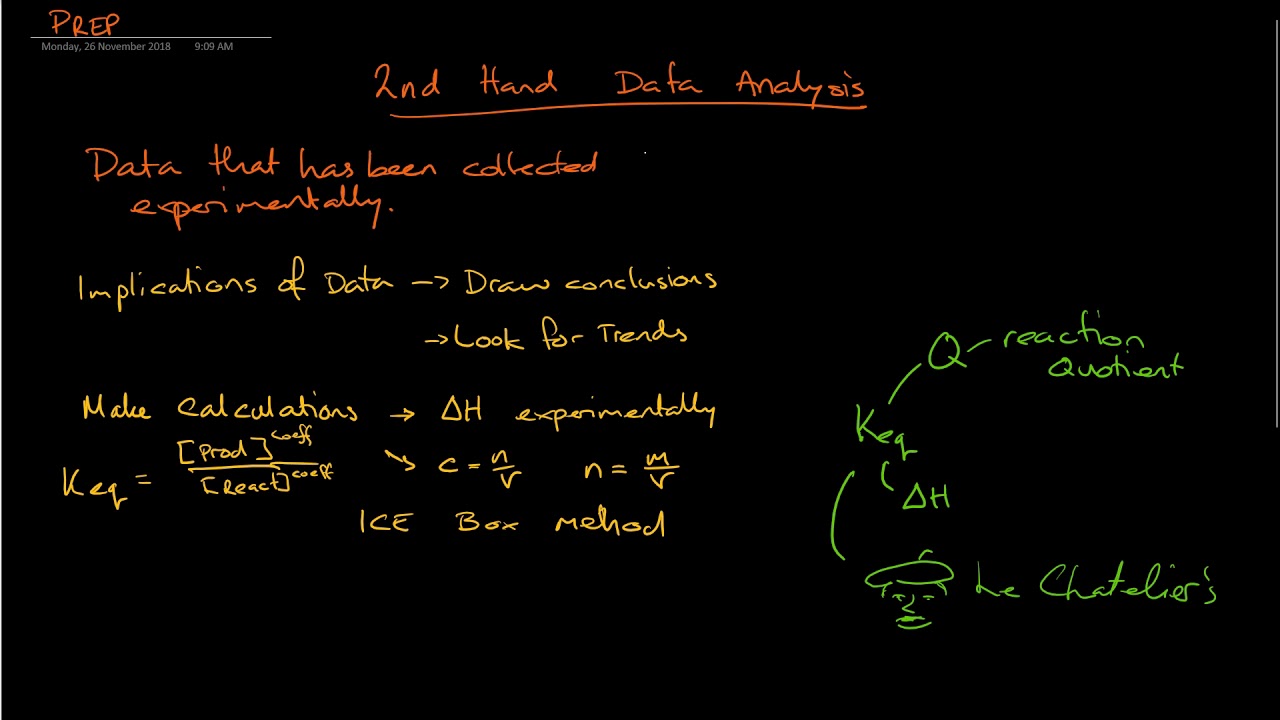 PREP
Monday, 26 November 2018 9:09 AM
2nd Hand Data Analysis
Data that has been collected
experimentally.
Implications of Data → Draw conclusions
→ Look for Trends
Make Calculations → ΔH experimentally
Keq = [Prod]^coeff / [React]^coeff
↘ c = n/v n = m/v
ICE Box method
Q - reaction
Quotient
Keq
ΔH
Le Chatelier's